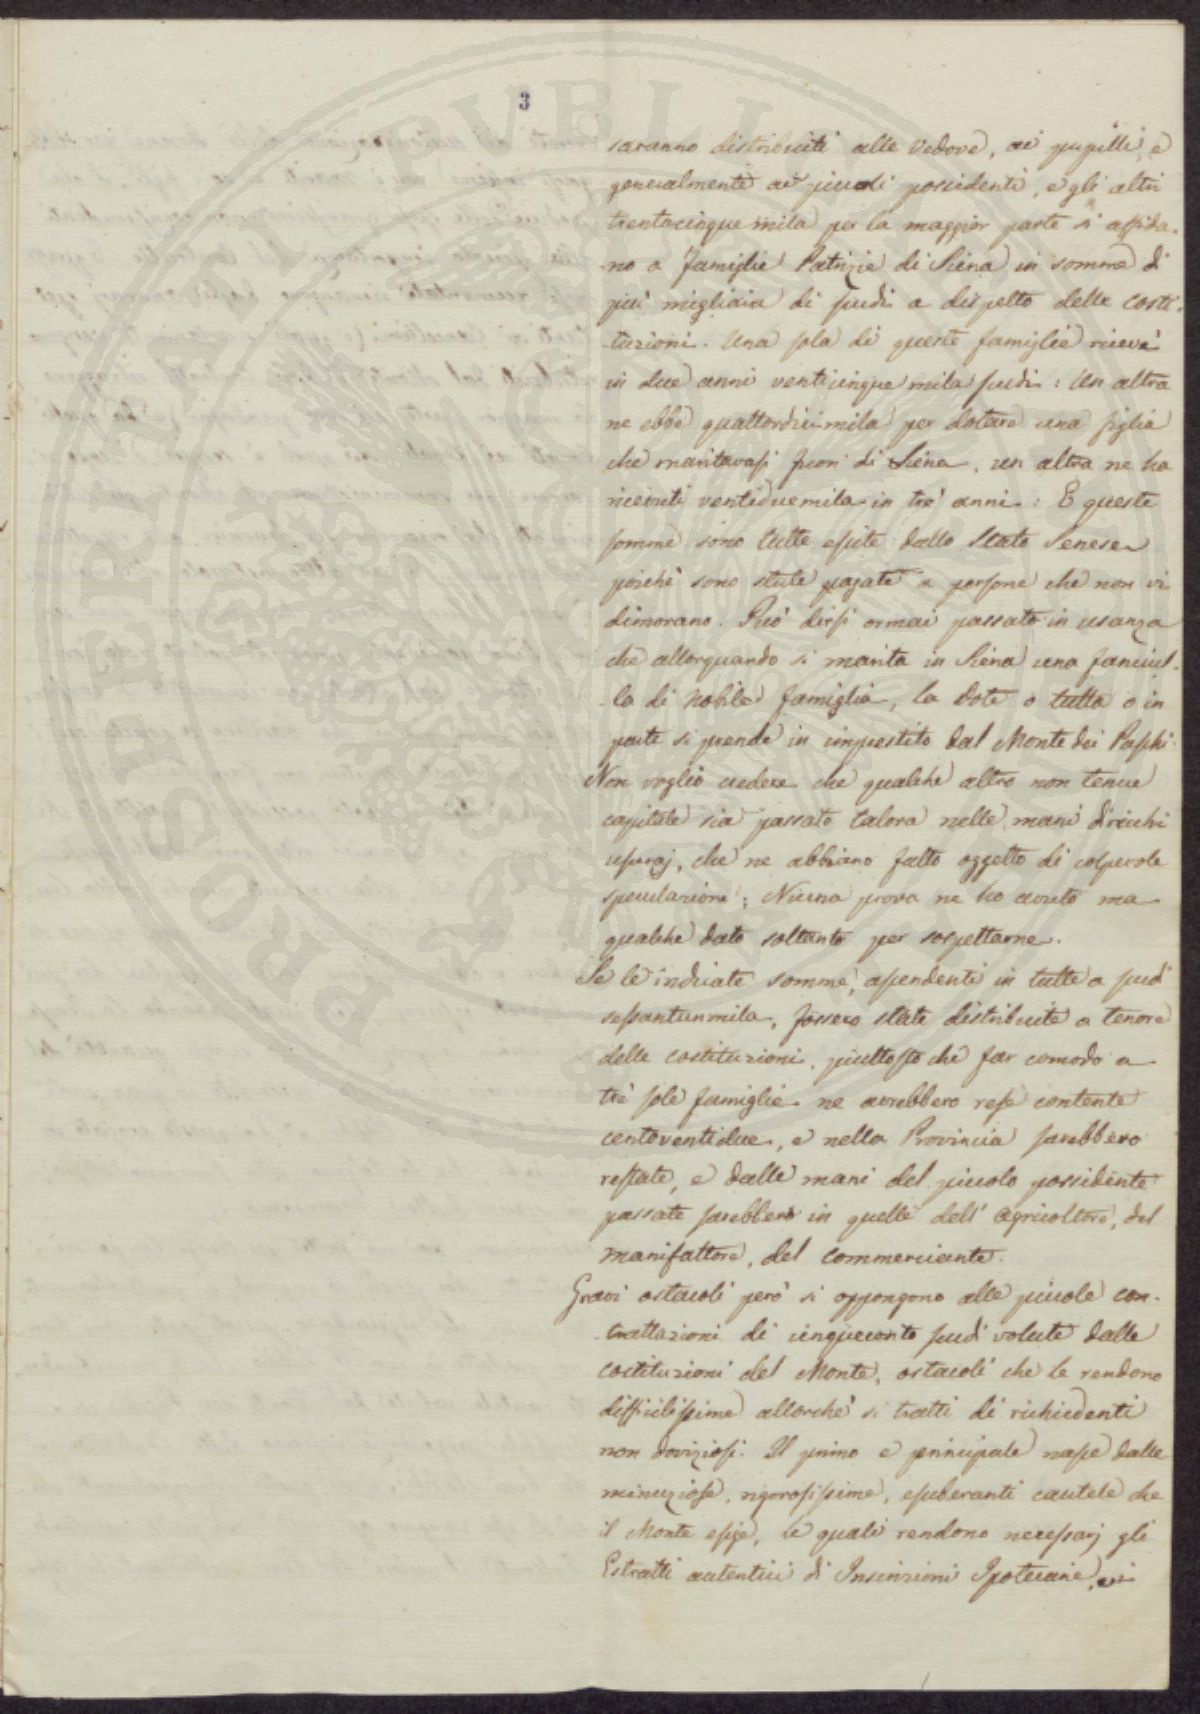 3
saranno distribuiti alle Vedove, ai pupilli, e
generalmente ai piccoli possidenti, e gli altri
trentacinque mila per la maggior parte si affida-
-no a famiglie Patrizie di Siena in somme di
più migliaia di scudi a dispetto delle costi-
-tuzioni. Una sola di queste famiglie riceve
in due anni venticinque mila scudi: Un altra
ne ebbe quattordicimila per dotare una figlia
che maritavasi fuori di Siena, un altra ne ha
ricevuti ventiduemila in tre anni: E queste
somme sono tutte escite dallo Stato Senese
poiché sono state pagate a persone che non vi
dimorano. Può dirsi ormai passato in usanza
che allorquando si marita in Siena una fanciul-
-la di nobile famiglia, la dote o tutta o in
parte si prende in imprestito dal Monte dei Paschi.
Non voglio credere che qualche altro non tenue
capitale sia passato talora nelle mani di ricchi
usuraj, che ne abbiano fatto oggetto di colpevole
speculazione; Niuna prova ne ho avuto ma
qualche dato soltanto per sospettarne.
Se le indicate somme, ascendenti in tutte a scudi
sessantunmila, fossero state distribuite a tenore
delle costituzioni, piuttosto che far comodo a
tre sole famiglie ne avrebbero rese contente
centoventidue, e nella Provincia sarebbero
restate, e dalle mani del piccolo possidente
passate sarebbero in quelle dell' agricoltore, del
manifattore, del commerciante.
Gravi ostacoli però si oppongono alle piccole con-
-trattazioni di cinquecento scudi volute dalle
costituzioni del Monte, ostacoli che le rendono
difficilissime allorché si tratti di richiedenti
non doviziosi. Il primo e principale nasce dalle
minuziose, rigorosissime, esuberanti cautele che
il Monte esige, le quali rendono necessarj gli
Estratti autentici di Inscrizioni Ipotecarie,
PVBLI